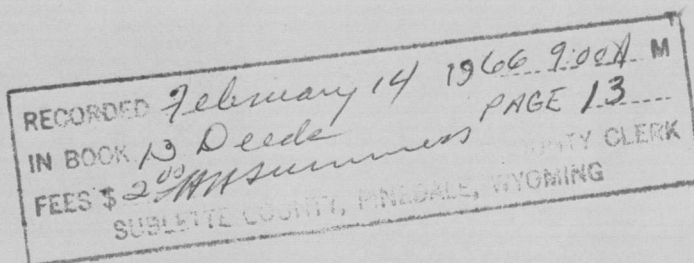 RECORDED February 14 1966 9:00 A M
IN BOOK 13 Deeds PAGE 13
FEES $ 2.00 COUNTY CLERK
SUBLETTE COUNTY, PINEDALE, WYOMING